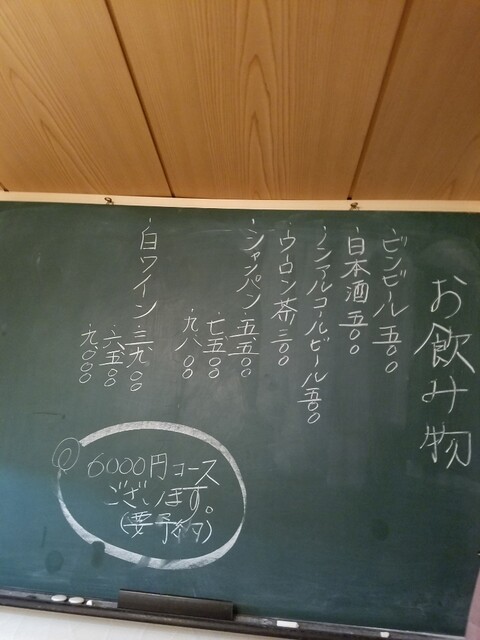 お飲み物
・ビンビール 五〇〇
・日本酒 五〇〇
・ノンアルコールビール 五〇〇
・ウーロン茶 三〇〇
・シャンパン・五、五〇〇
・七五〇〇
・九、八〇〇
・白ワイン・三、九〇〇
・六、五〇〇
・九、〇〇〇
6000円コース
ございます。
(要予約)